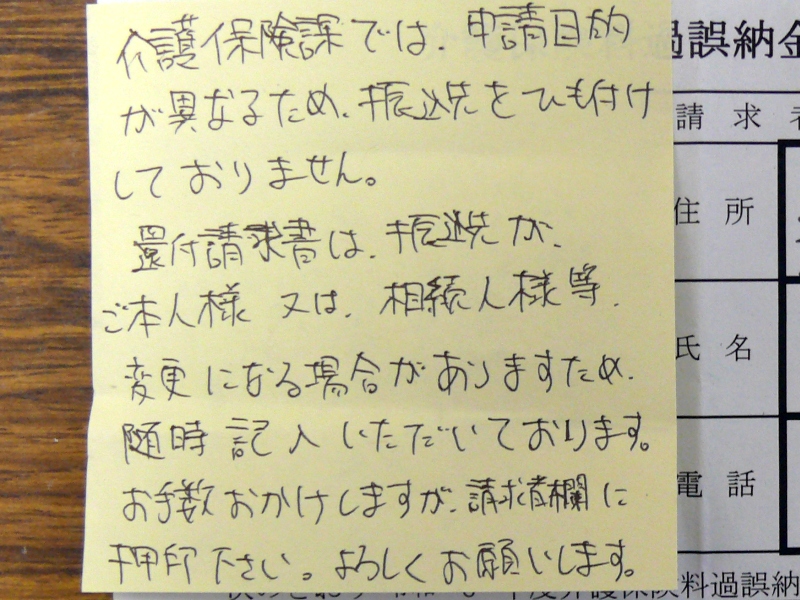 介護保険課では、申請目的
が異なるため、振込先をひも付け
しておりません。
還付請求書は、振込先が、
ご本人様 又は、相続人様等、
変更になる場合がありますため、
随時記入いただいております。
お手数おかけしますが、請求者欄に
押印下さい。よろしくお願いします。
過誤納金
請求者
住所
氏名
電話
介護保険料過誤納